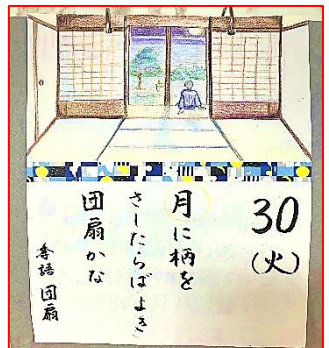 30
(火)
月に柄を
さしたらばよき
団扇かな
季語 団扇